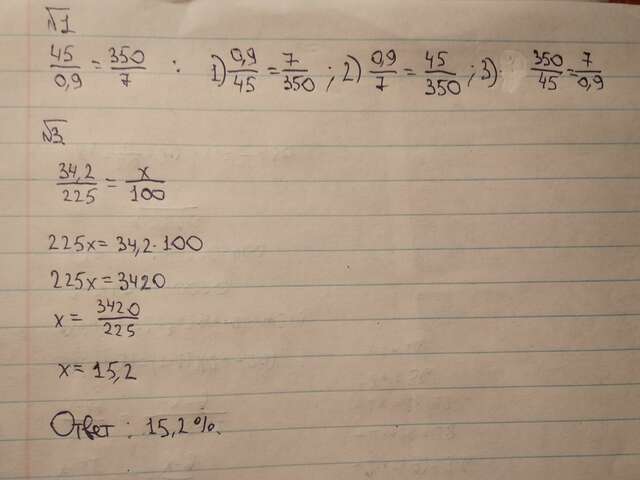 №1
45/0,9 = 350/7 : 1) 0,9/45 = 7/350 ; 2) 0,9/7 = 45/350 ; 3) 350/45 = 7/0,9
№3
34,2/225 = x/100
225x = 34,2·100
225x = 3420
x = 3420/225
x = 15,2
Ответ : 15,2%.